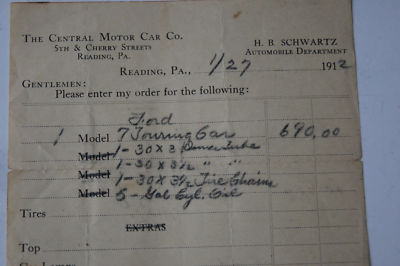 THE CENTRAL MOTOR CAR CO.
5TH & CHERRY STREETS
READING, PA.
H. B. SCHWARTZ
AUTOMOBILE DEPARTMENT
READING, PA., 1/27 1912
GENTLEMEN:
Please enter my order for the following:
Ford
1 Model T Touring Car 690.00
Model 1 - 30 X 3 Inner Tube
Model 1 - 30 X 3½ " "
Model 1 - 30 X 3½ Tire Chains
Model 5 - Gal Cyl. Oil
Tires
EXTRAS
Top